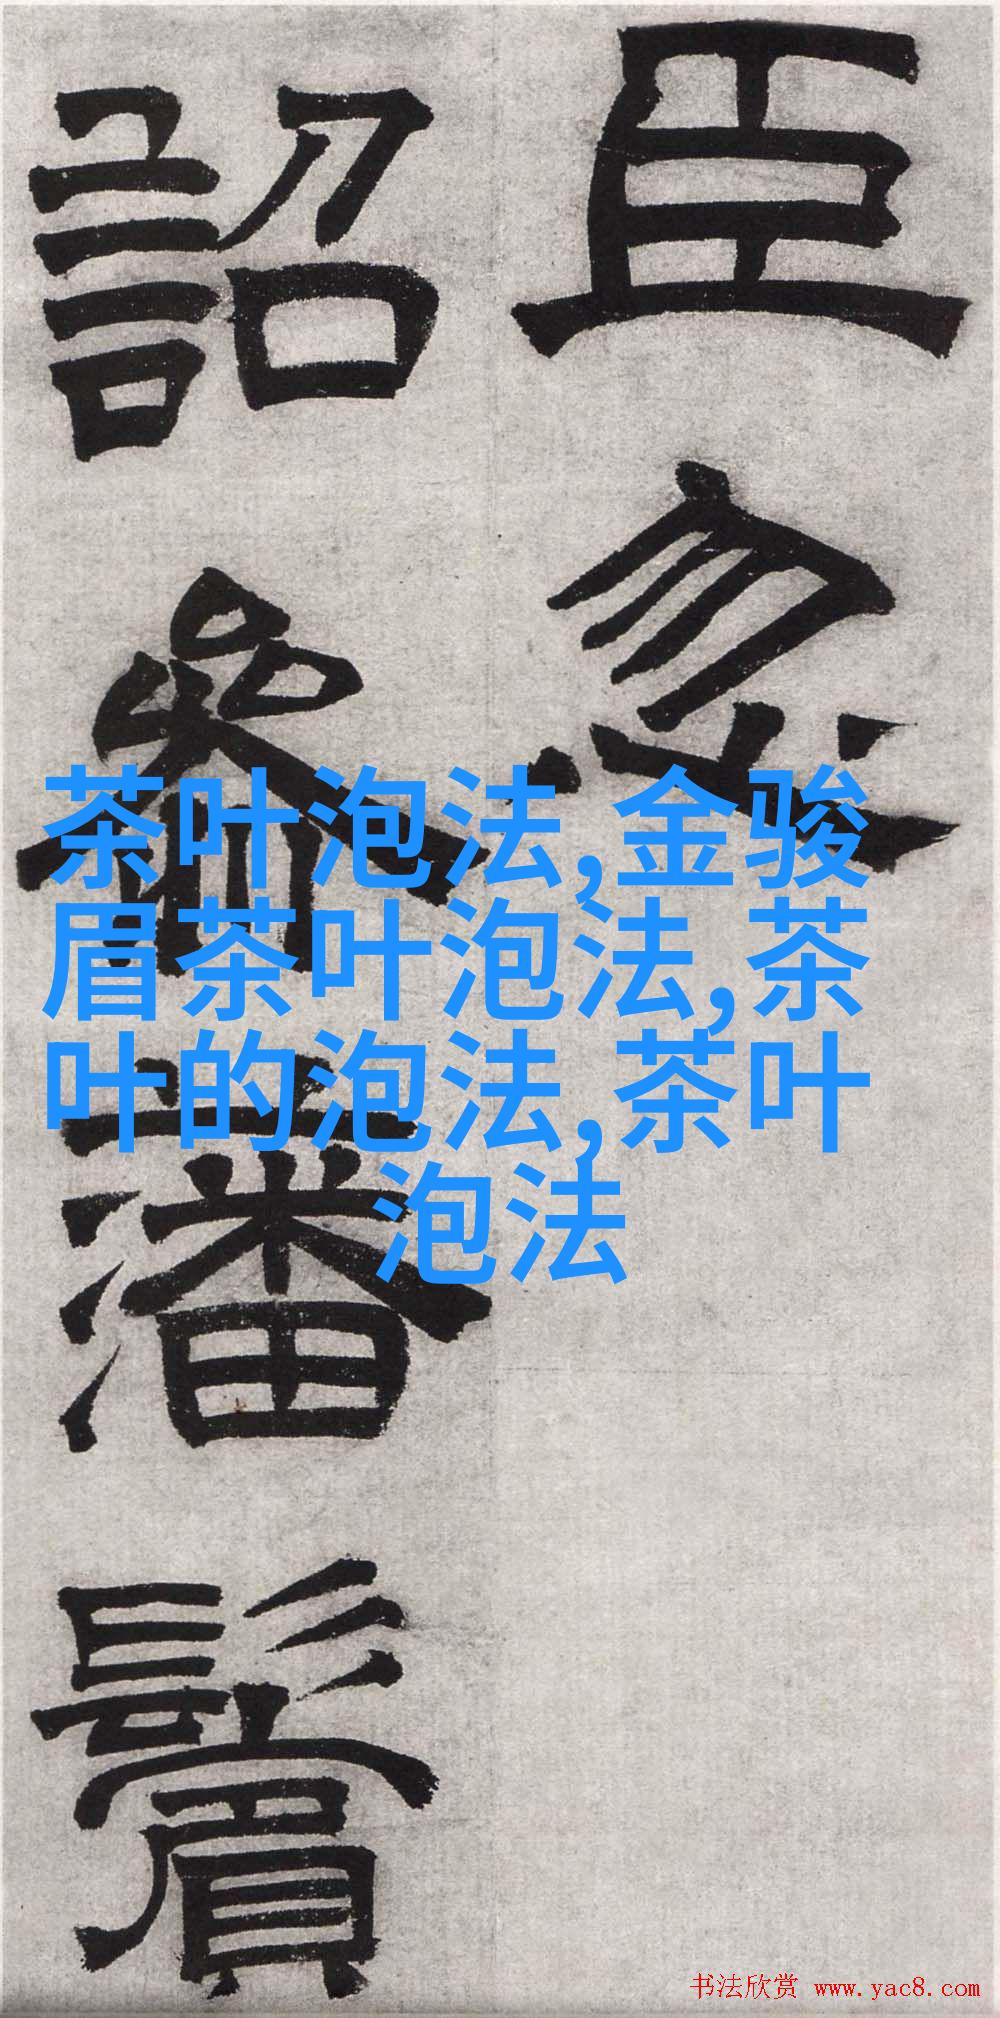 臣忽
詔參藩鬢
茶叶泡法,金骏
眉茶叶泡法,茶
叶的泡法,茶叶
泡法
书法欣赏 www.yac8.com